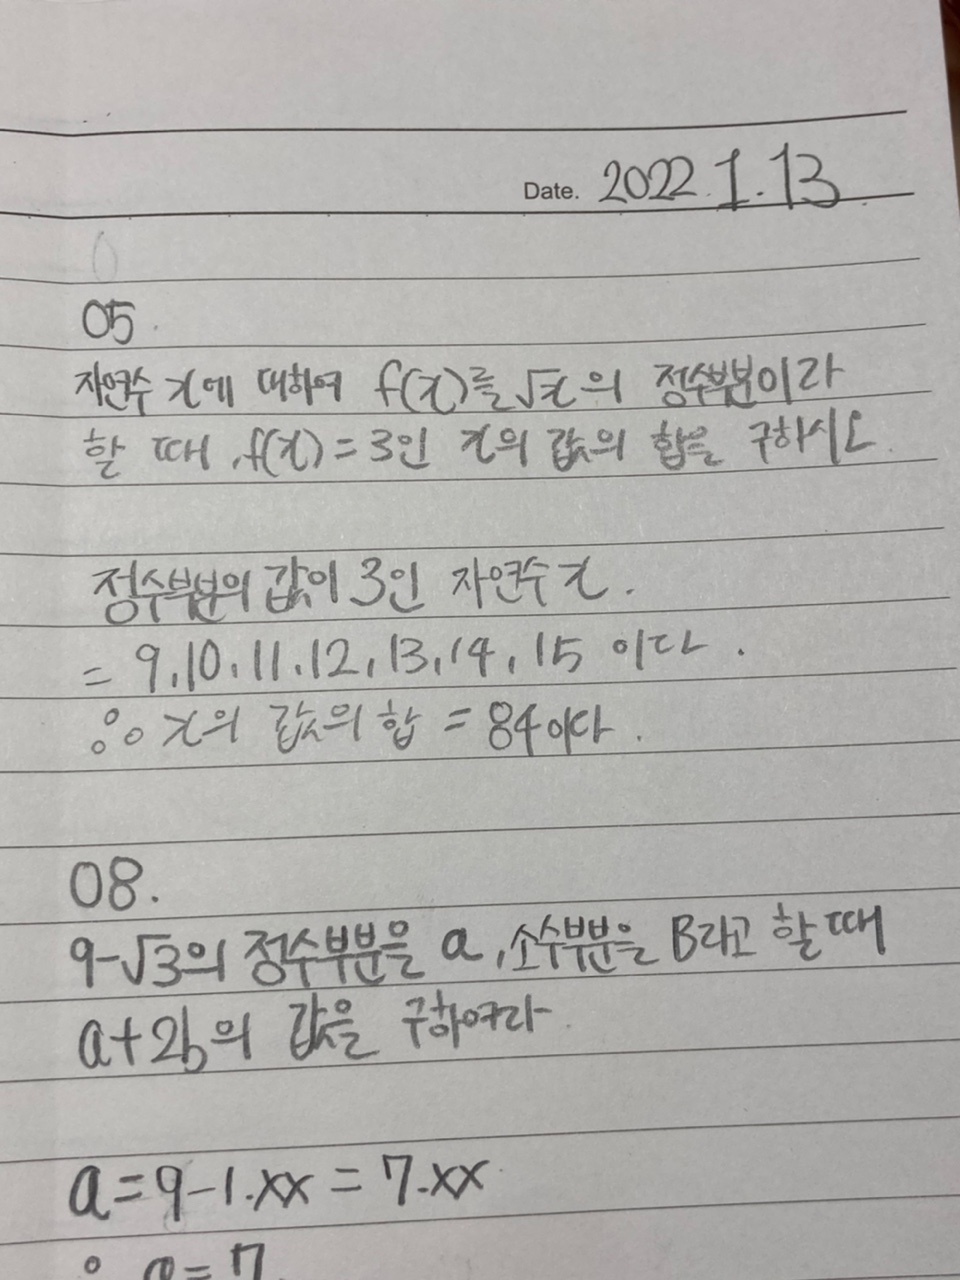 Date. 2022.1.13
05.
자연수 x에 대하여 f(x)를 √x의 정수부분이라
할 때, f(x)=3인 x의 값의 합을 구하시오.
정수부분의 값이 3인 자연수 x.
= 9, 10, 11, 12, 13, 14, 15 이다.
∴ x의 값의 합 = 84이다.
08.
9-√3의 정수부분을 a, 소수부분을 B라고 할 때
a+2b의 값을 구하여라.
a=9-1.xx=7.xx
∴ a=7